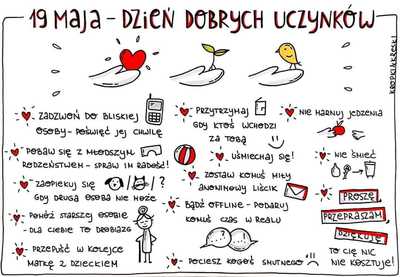 19 MAJA - DZIEŃ DOBRYCH UCZYNKÓW
ZADZWOŃ DO BLISKIEJ
OSOBY - POŚWIĘĆ JEJ CHWILĘ
POBAW SIĘ Z MŁODSZYM
RODZEŃSTWEM - SPRAW IM RADOŚĆ!
ZAOPIEKUJ SIĘ / / ?
GDY DRUGA OSOBA NIE MOŻE
POMÓŻ STARSZEJ OSOBIE
DLA CIEBIE TO DROBIAZG
PRZEPUŚĆ W KOLEJCE
MATKĘ Z DZIECKIEM
PRZYTRZYMAJ
GDY KTOŚ WCHODZI
ZA TOBĄ
UŚMIECHAJ SIĘ!
ZOSTAW KOMUŚ MIŁY
ANONIMOWY LIŚCIK
BĄDŹ OFFLINE - PODARUJ
KOMUŚ CZAS W REALU
POCIESZ KOGOŚ SMUTNEGO
NIE MARNUJ JEDZENIA
NIE ŚMIEĆ
PROSZĘ,
PRZEPRASZAM,
DZIĘKUJĘ
TO CIĘ NIC
NIE KOSZTUJE!
KROPKI&KRESKI